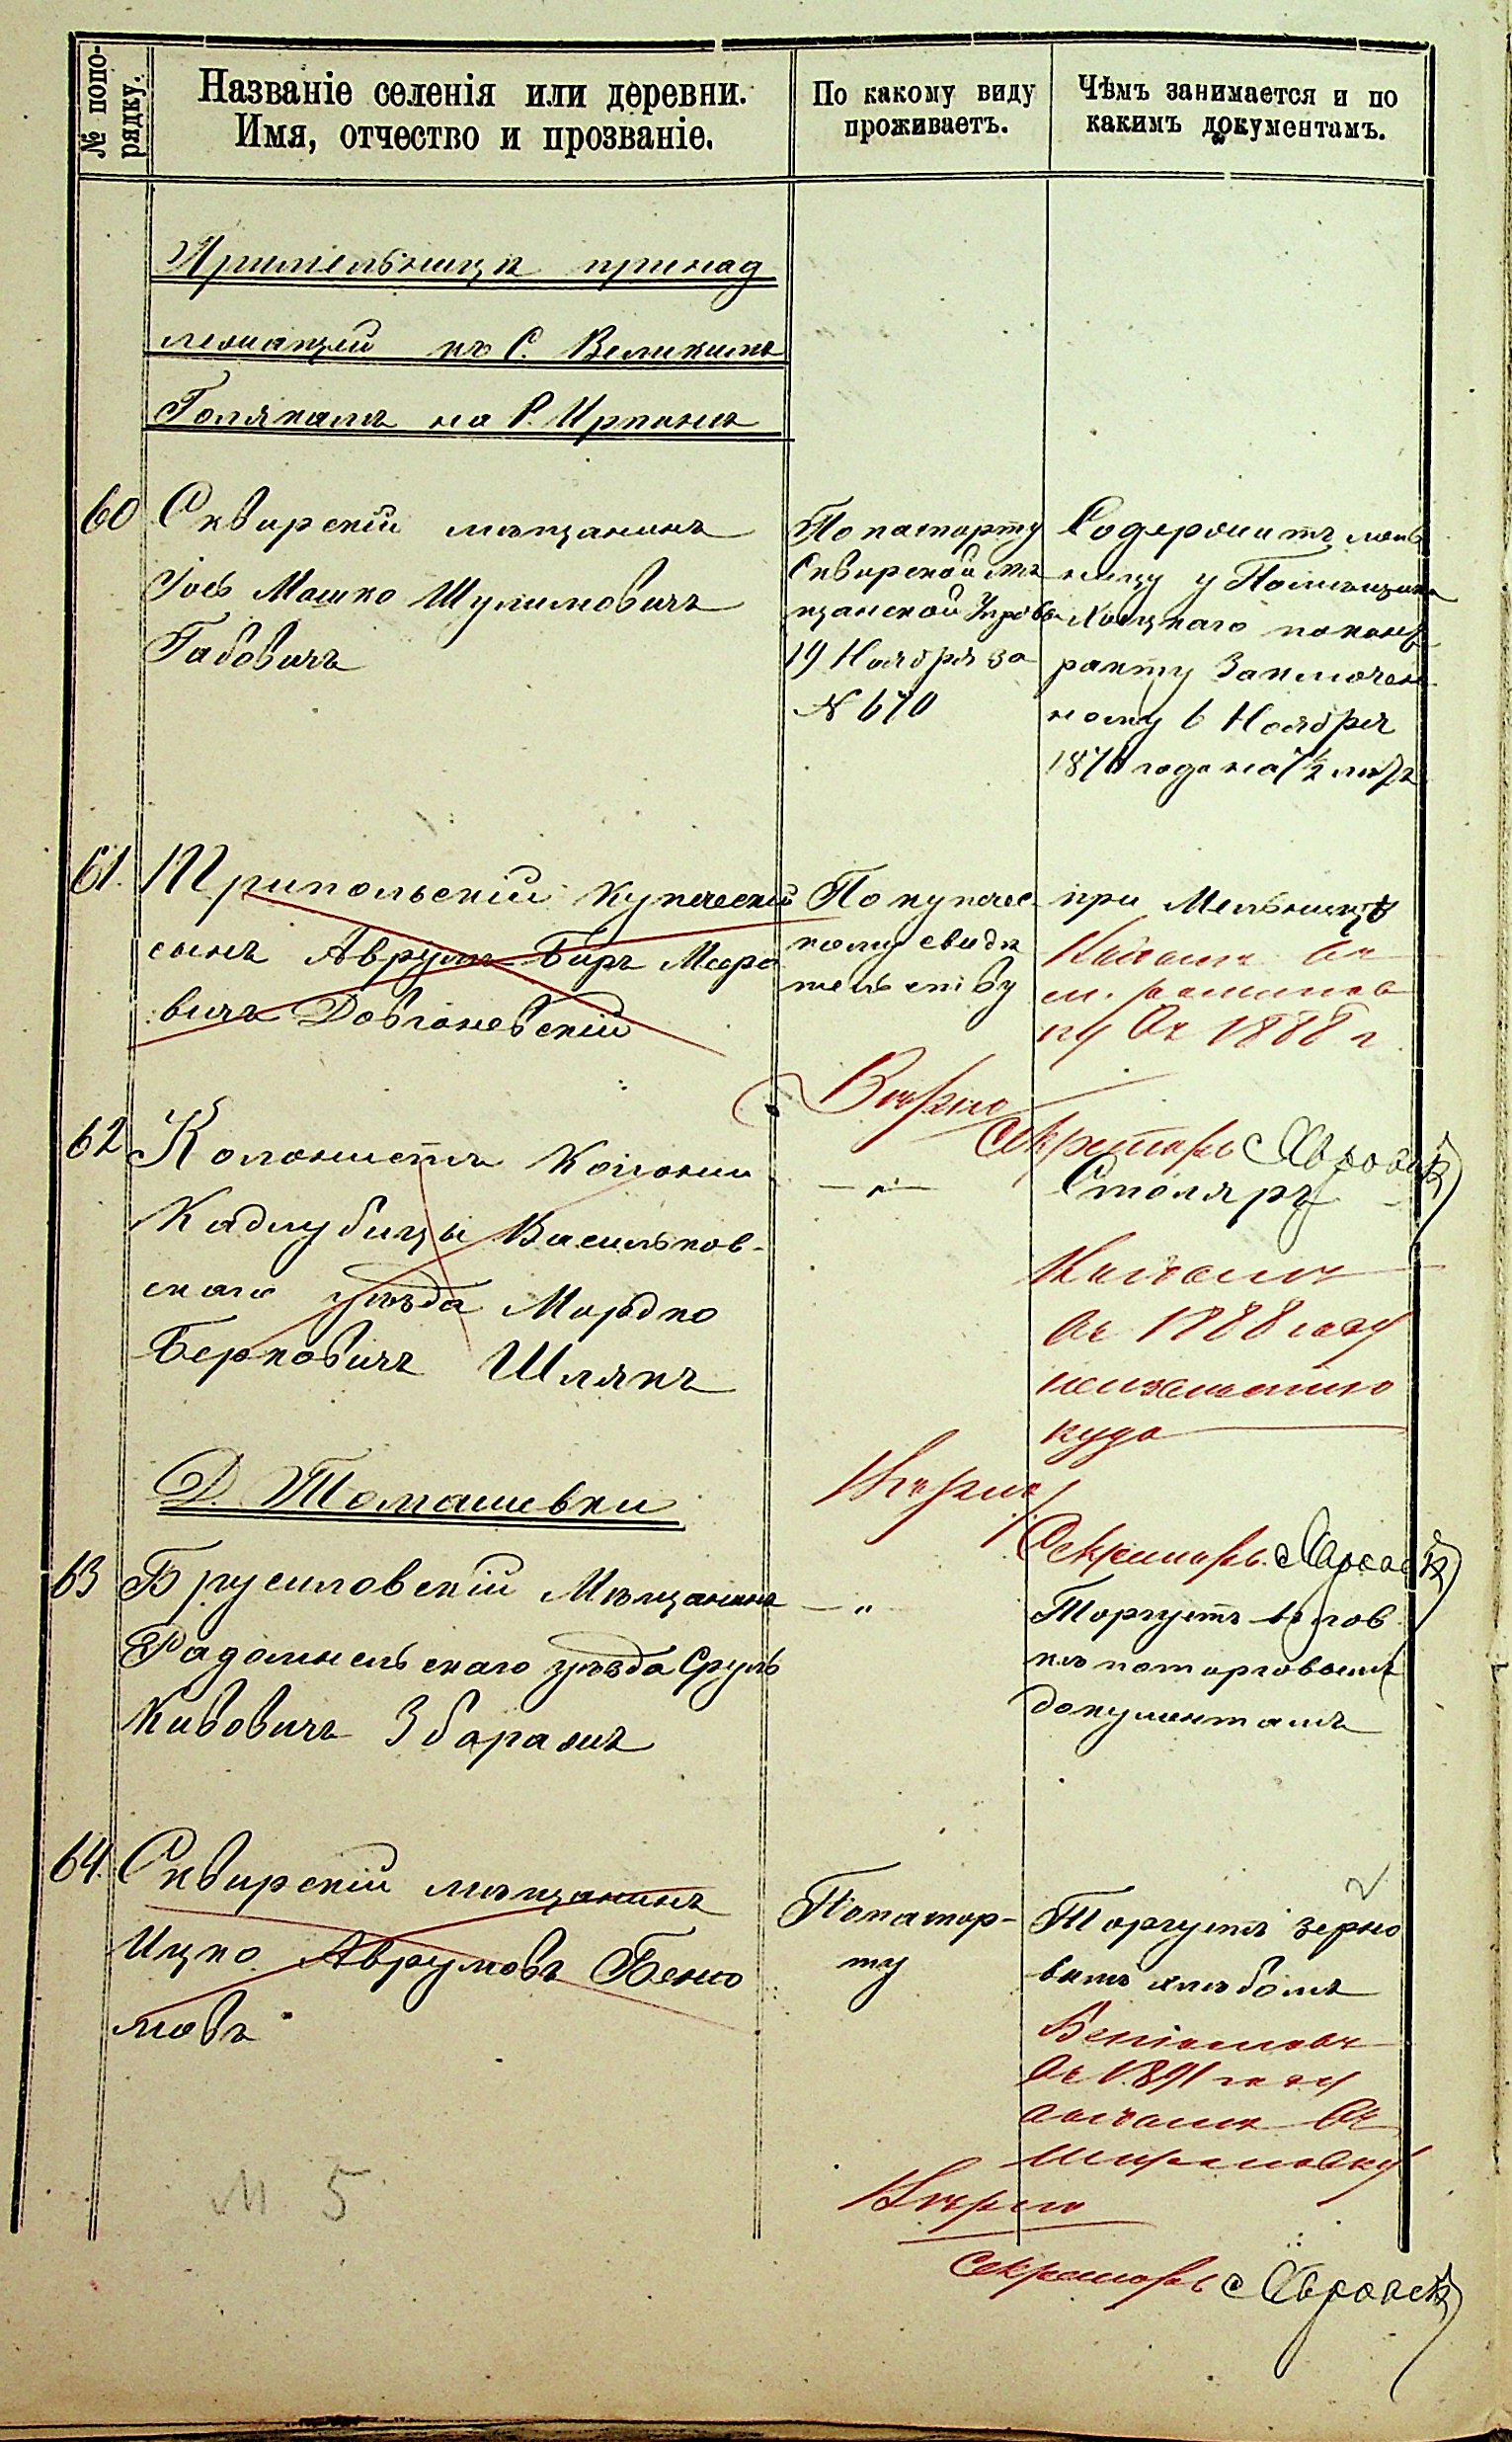 № попо-
рядку.
Названіе селенія или деревни.
Имя, отчество и прозваніе.
По какому виду
проживаетъ.
Чѣмъ занимается и по
какимъ документамъ.
При мельницѣ принад
лежащей къ С. Великимъ
Голякамъ на Р. Ирпень
60
Сквирскій мѣщанинъ
Іось Мошко Шулимовичъ
Габовичъ
По паспорту
Сквирской мѣ
щанской Управы
19 Ноября за
№ 670
Содержитъ мель
ницу у Помѣщика
поконт
ракту Заключен
ному 6 Ноября
1876 года на 7½ лѣтъ
61.
Трипольскій купеческій
сынъ Аврумъ-Беръ Меро
вичъ Довгоневскій
По купечес
кому свидѣ
тельству
при Мельницѣ
Выбылъ въ
м.
въ 1888 г.
Вѣрно
Секретарь
62
Колонистъ Колоніи
Кадлубицы Васильков-
скаго уѣзда Мордко
Берковичъ Шлякъ
— „ —
Столяръ
Выбылъ
въ 1888 году
неизвѣстно
куда
Д. Томашевки
Вѣрно
Секретарь
63
Брусиловскій Мѣщанинъ
Радомысльскаго уѣзда Сруль
Кивовичъ Збаражъ
— „
Торгуетъ
по торговымъ
документамъ
64.
Сквирскій мѣщанинъ
Ицко Аврумовъ Беніо
мовъ
По паспор-
ту
Торгуетъ зерно
вымъ хлѣбомъ
Беніомовъ
въ 1891 году
выбылъ въ
Вѣрно
Секретарь
М 5